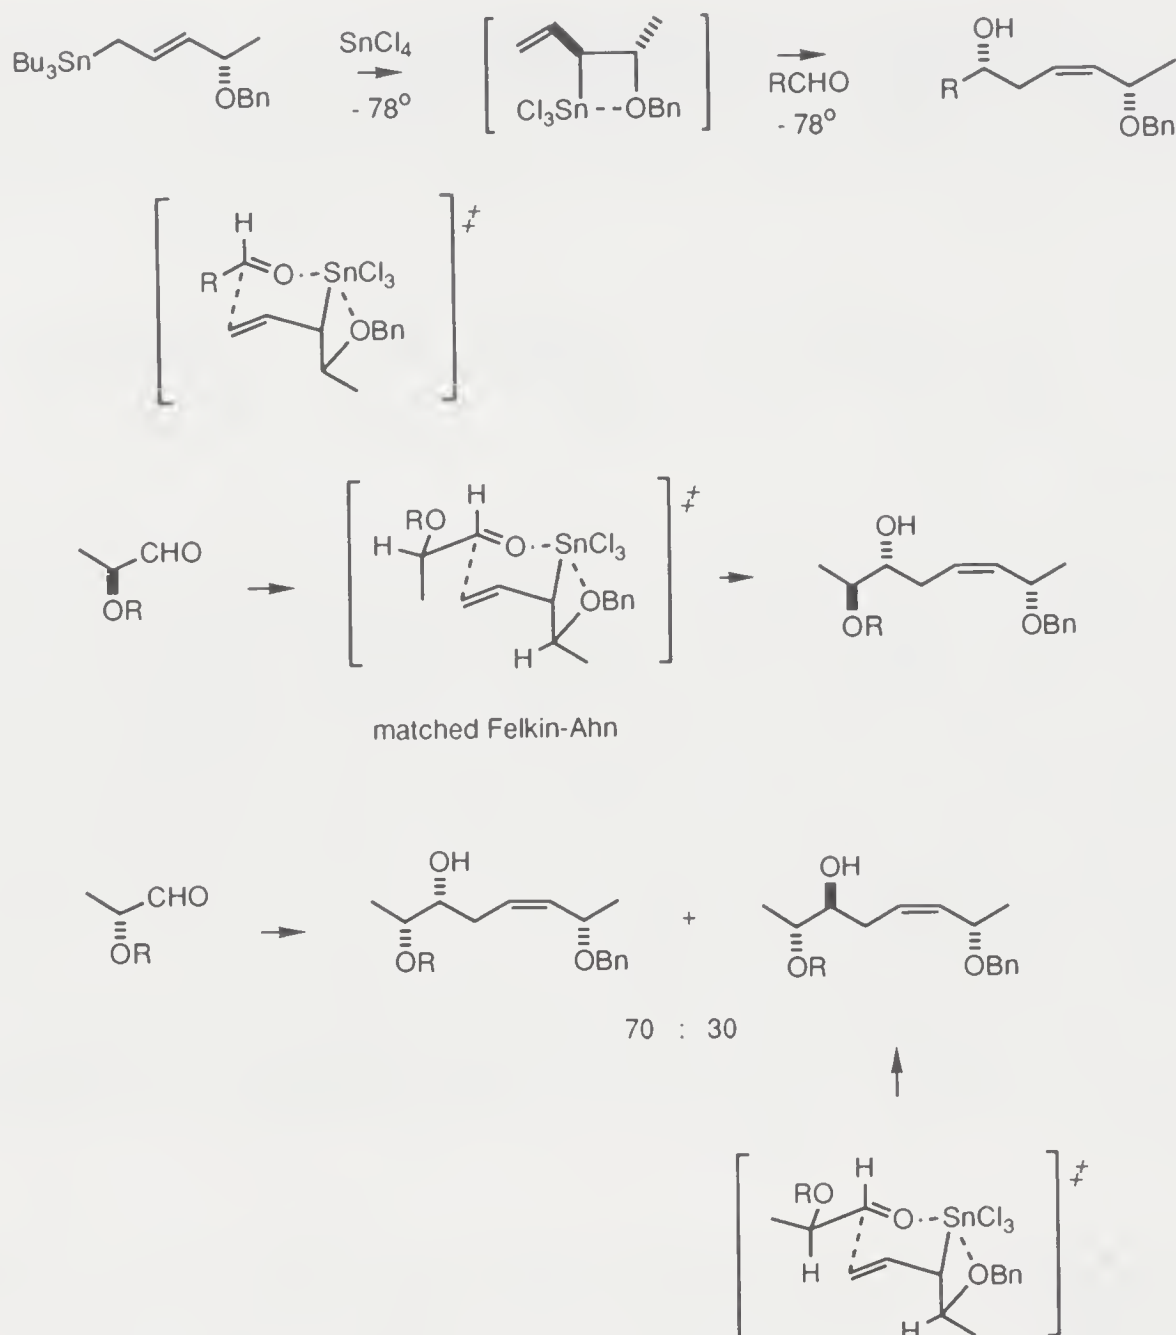 Bu3Sn OBn SnCl4 - 78° Cl3Sn OBn RCHO - 78° OH R OBn
H R O SnCl3 OBn ‡
CHO OR
RO H H O SnCl3 OBn H ‡
OH OR OBn
matched Felkin-Ahn
CHO OR
OH OR OBn + OH OR OBn
70 : 30
RO H H O SnCl3 OBn H ‡